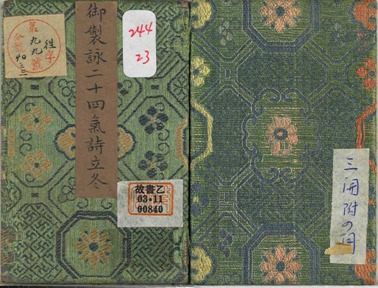 御製詠二十四氣詩立冬
244
23
故書乙
03•11
00840
三開附の同